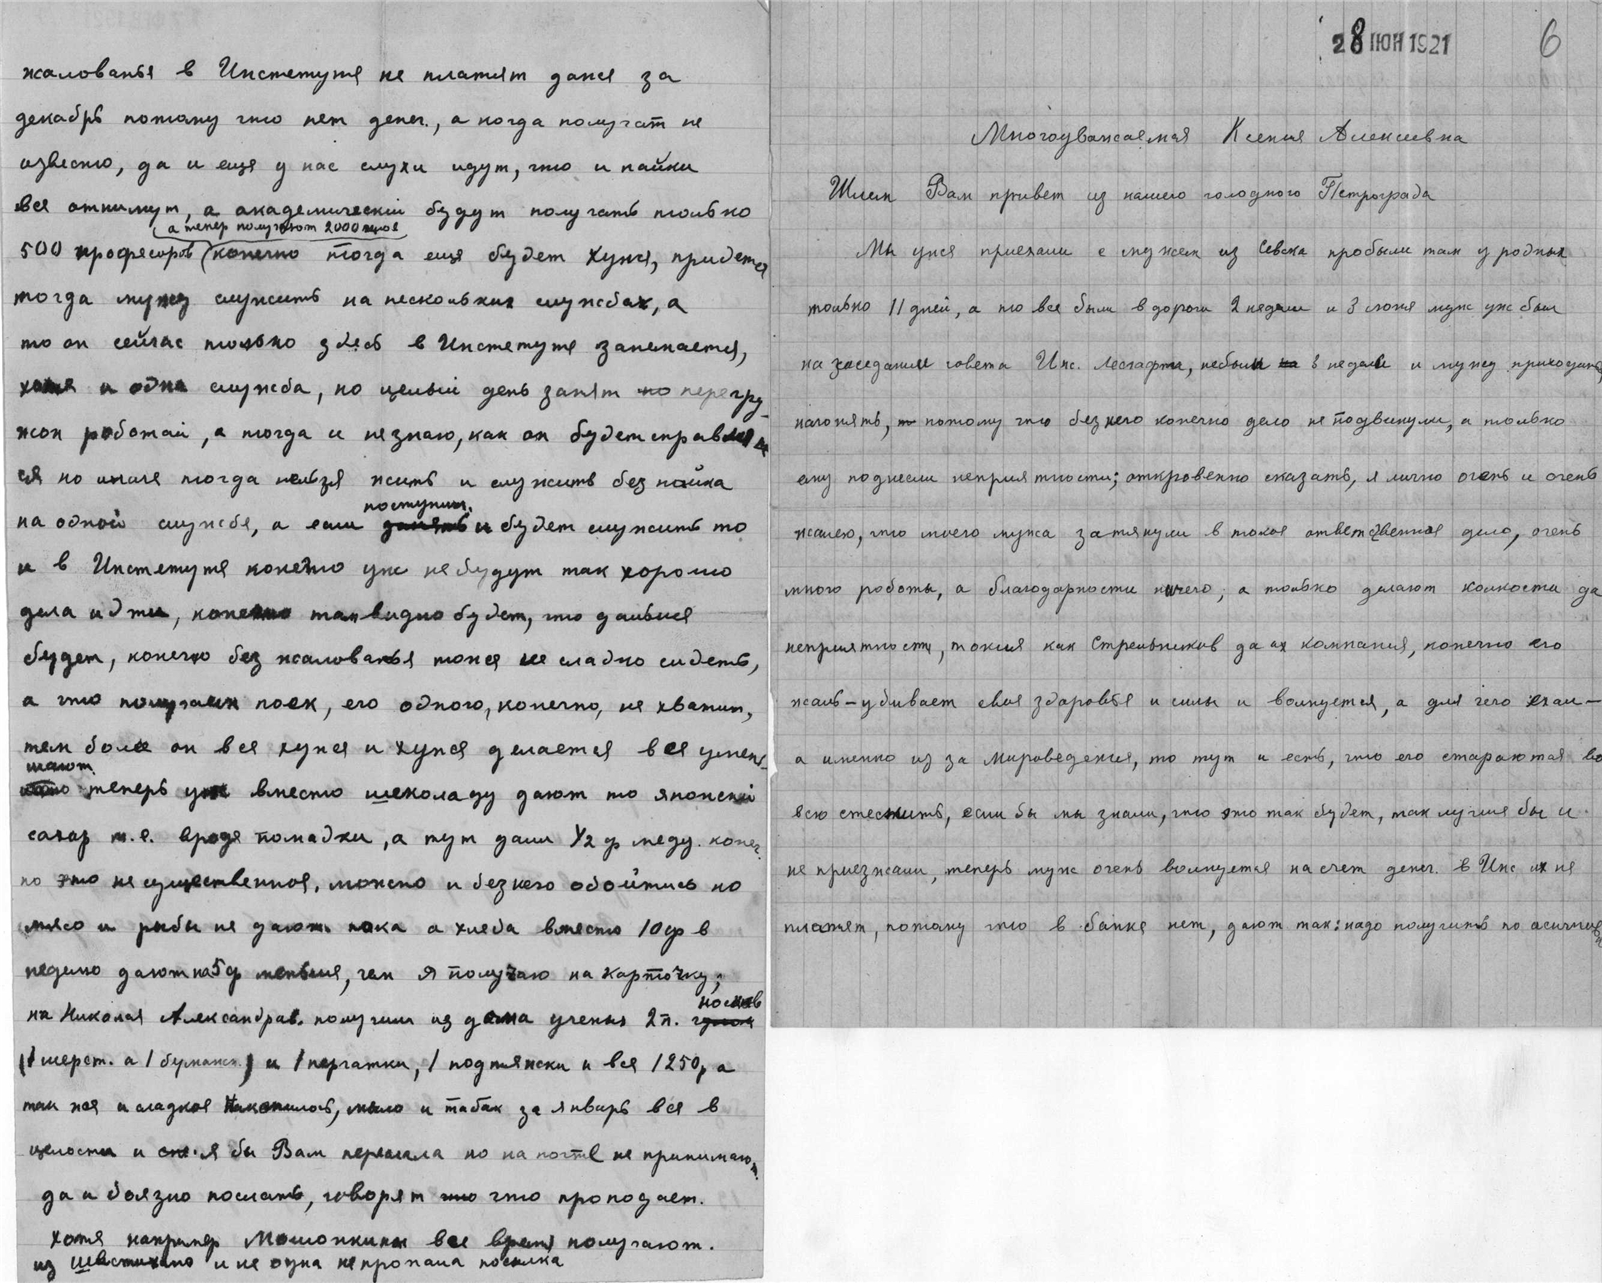 жалованья в Инстетутя не платят даня за
декабрь потому что нет денег., а когда получат не
известно, да и ещя у нас слухи идут, что и пайки
вся отнимут, а академическій будут получать только
(а тепер получяют 2000
500 професоров (конечно тогда ещя будет хужя, придется
тогда мужу служить на несколькия службах, а
то он сейчас только здесь в Инстетутя занемается,
хотя и одна служба, но целый день занят но перегру-
жон роботай, а тогда и незнаю, как он будет справлятьц
ся но иначя тогда нельзя жить и служить без пайка
поступит.
на одной службя, а если и будет служить то
и в Инстетутя конечно уж не будут так хорошо
дела идти, конечно там видно будет, что дальшя
будет, конечно без жалованья тожя не сладко сидеть,
а что получаим поек, его одного, конечно, не хватит,
тем боле он вся хужя и хужя делается вся умень-
шают.
теперь уж вместо шеколаду дают то японский
сахар т.е. вродя помадки, а тут дали 1/2 ф меду. конеч.
но это не существенноя, можно и без него обойтись но
мясо и рыбы не дают. пока а хлеба вместо 10ф в
неделю дают на 5ф меньшя, чем я получаю на карточку;
носков
на Николая Александров. получили из дома ученых 2п.
(1 шерст. а 1 бумажн.) и 1 перчатки, 1 подтяжки и вся 1250р а
так жя и сладкоя накопилось, мыло и табак за январь вся в
целости и я бы Вам переслала но на почте не принимают.
да и боязно послать, говорят что проподает.
хотя например все время получают.
из и не одна не пропала посылка
28 ИЮН 1921
6
Многоуважаемая Ксения Алексеевна
Шлем Вам привет из нашего голодного Петрограда
Мы ужя приехали с мужем из Севска пробыли там у родных
только 11 дней, а то вся были в дороги 2 недели и 3 июня муж уж был
на заседании совета Инс. Лесгафта, небыли в неделе и мужу приходится
нагонять, потому что без него конечно дело не подвинули, а только
ему поднесли неприятности; откровенно сказать, я лично очень и очень
жалею, что моего мужа затянули в такоя ответственноя дело, очень
много роботы, а благодарности ничего, а только делают колкости да
неприятности, такия как Стрельников да ая компания, конечно его
жаль - убивает своя здаровья и силы и волнуется, а для чего ехал-
а именно из за Мироведения, то тут и есть, что его стараются во
всю стеснить, если бы мы знали, что это так будет, так лучшя бы и
не приезжали, теперь муж очень волнуется на счет денег. в Инс их не
платят, потому что в банке нет, дают так: надо получить по асигнов